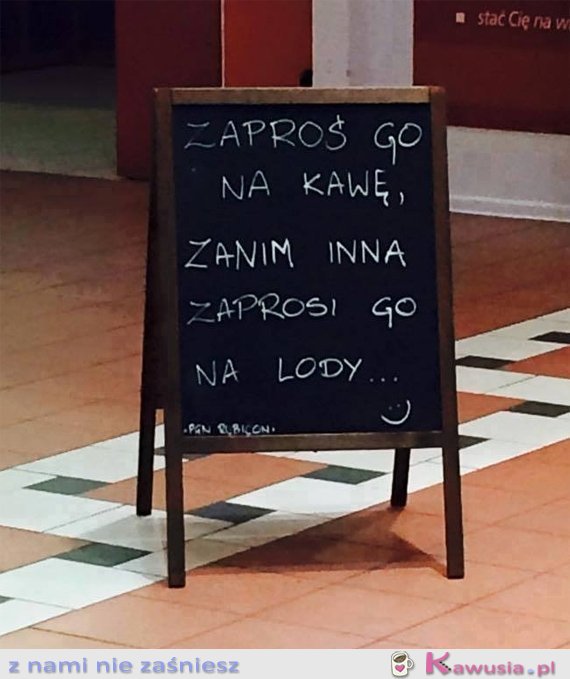 stać Cię na w
ZAPROŚ GO
NA KAWĘ,
ZANIM INNA
ZAPROSI GO
NA LODY... :)
z nami nie zaśniesz
Kawusia.pl